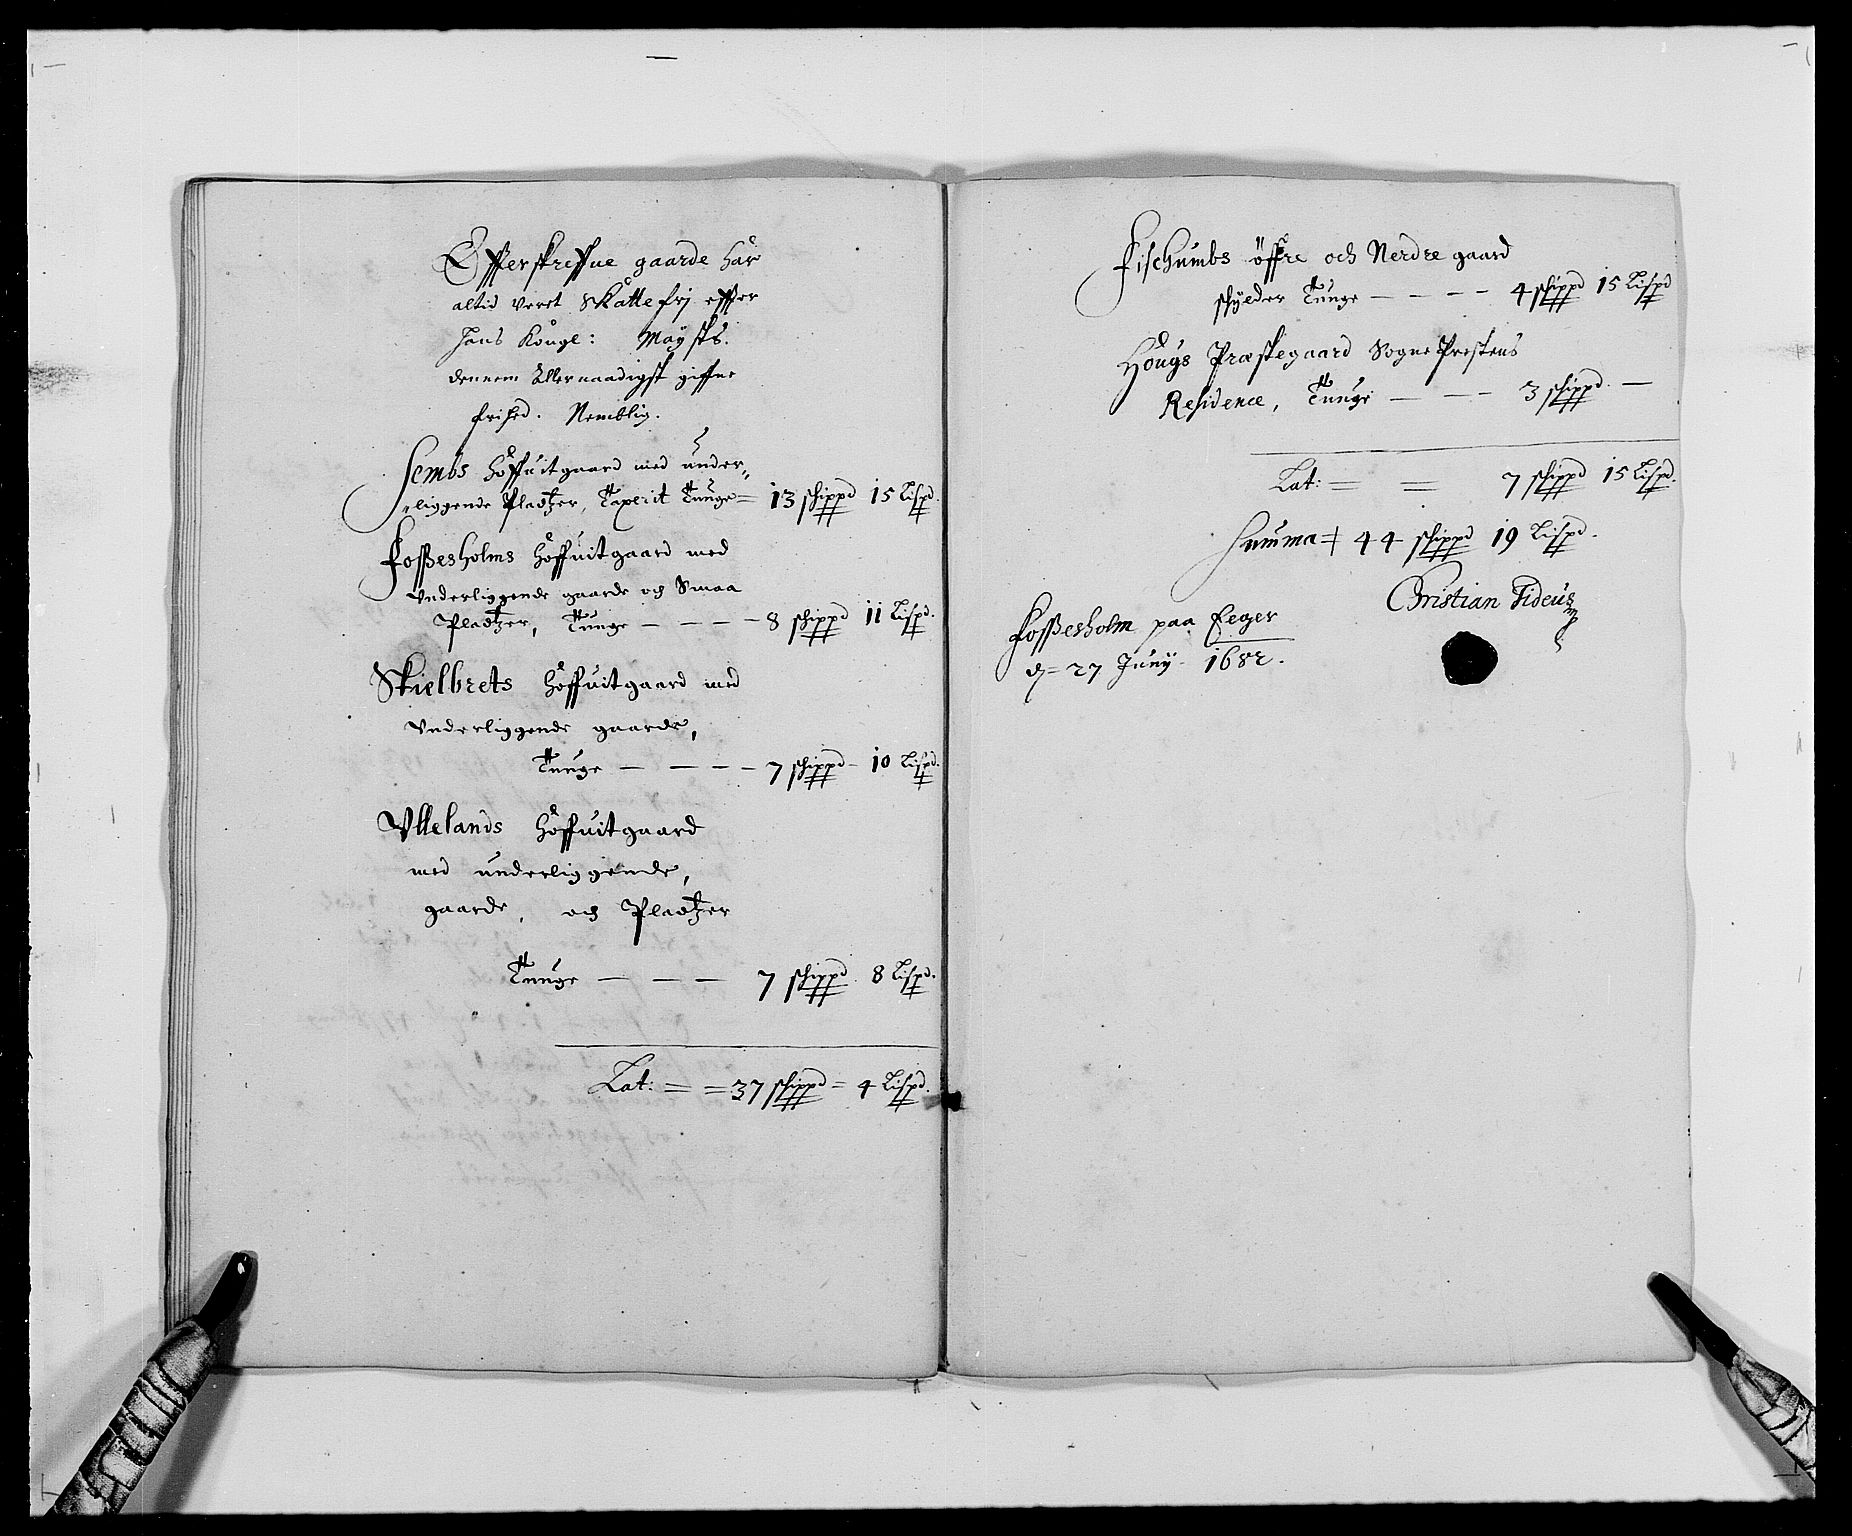 Effterskreffne gaarde har
altid veret Skatte frj effter
Hans Kongl: Maÿstz.
dennem Allernaadigst giffne
frihed. Nemblig.
Sembs Höffuitgaard med under„
liggende Pladtzer, Taxerit Tunge = 13 schippd 15 Lispd.
Foßesholms Höffuitgaard med
Vnderliggende gaarde och Smaa
Pladtzer, Tunge — — — — 8 schippd 11 Lispd.
Skielbrets Höffuitgaard med
Vnderliggende gaarde,
Tunge — — — — 7 schippd – 10 Lispd.
Vllelands Höffuitgaard
med underliggende,
gaarde, och Pladtzer
Tunge — — — 7 schippd. 8 Lispd.
Lat: = = 37 schippd = 4 Lispd.
Fischumbs öffre och Nerdre gaard
schÿlder Tunge — — — — 4 schippd 15 Lispd
Hougs Præstegaard Sogne Prestens
Residence, Tunge — — — 3 schippd. —
Lat: = = 7 schippd 15 Lispd.
Summa = 44 schippd 19 Lispd.
Christian Fideus
Foßesholm paa Eeger
d = 27 Junÿ. 1682.